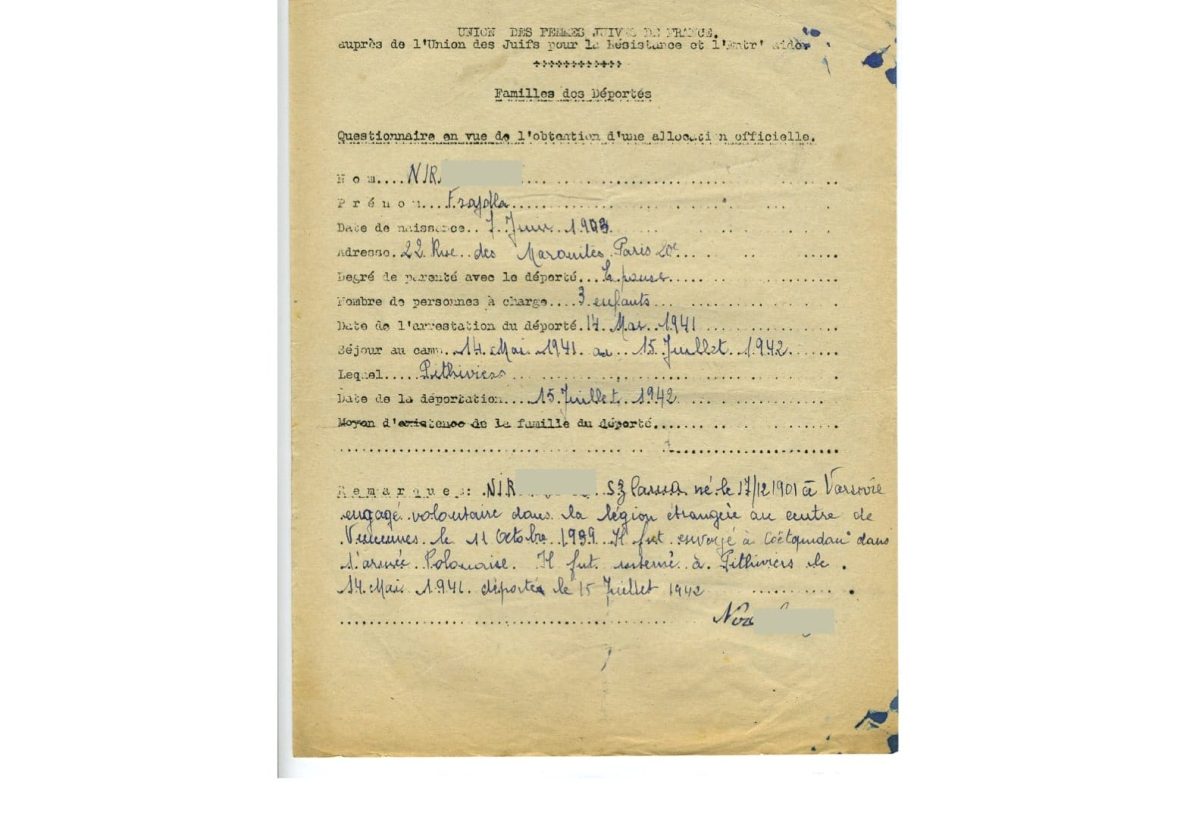 UNION DES FEMMES JUIVES DE FRANCE.
auprès de l'Union des Juifs pour la Résistance et l'Entr'aide
++++++++++++
Familles des Déportés
Questionnaire en vue de l'obtention d'une allocation officielle.
Nom.... NIR
Prénom.... Frajdla
Date de naissance.. 7 Juin 1903
Adresse. 22 Rue des Maronites Paris 20e
Degré de parenté avec le déporté...
Nombre de personnes à charge.... 3 enfants
Date de l'arrestation du déporté. 14 Mai 1941
Séjour au camp. 14 Mai 1941 au 15 Juillet 1942
Lequel..... Pithiviers
Date de la déportation.... 15 Juillet 1942
Moyen d'existence de la famille du déporté.
Remarques: NIR né le 17/12 1901 à Varsovie
engagé volontaire dans la légion étrangère au centre de
Vincennes le 11 Octobre 1939 Il fut envoyé à Coëtquidan dans
l'armée Polonaise. Il fut interné à Pithiviers le
14 Mai 1941 déporté le 15 Juillet 1942